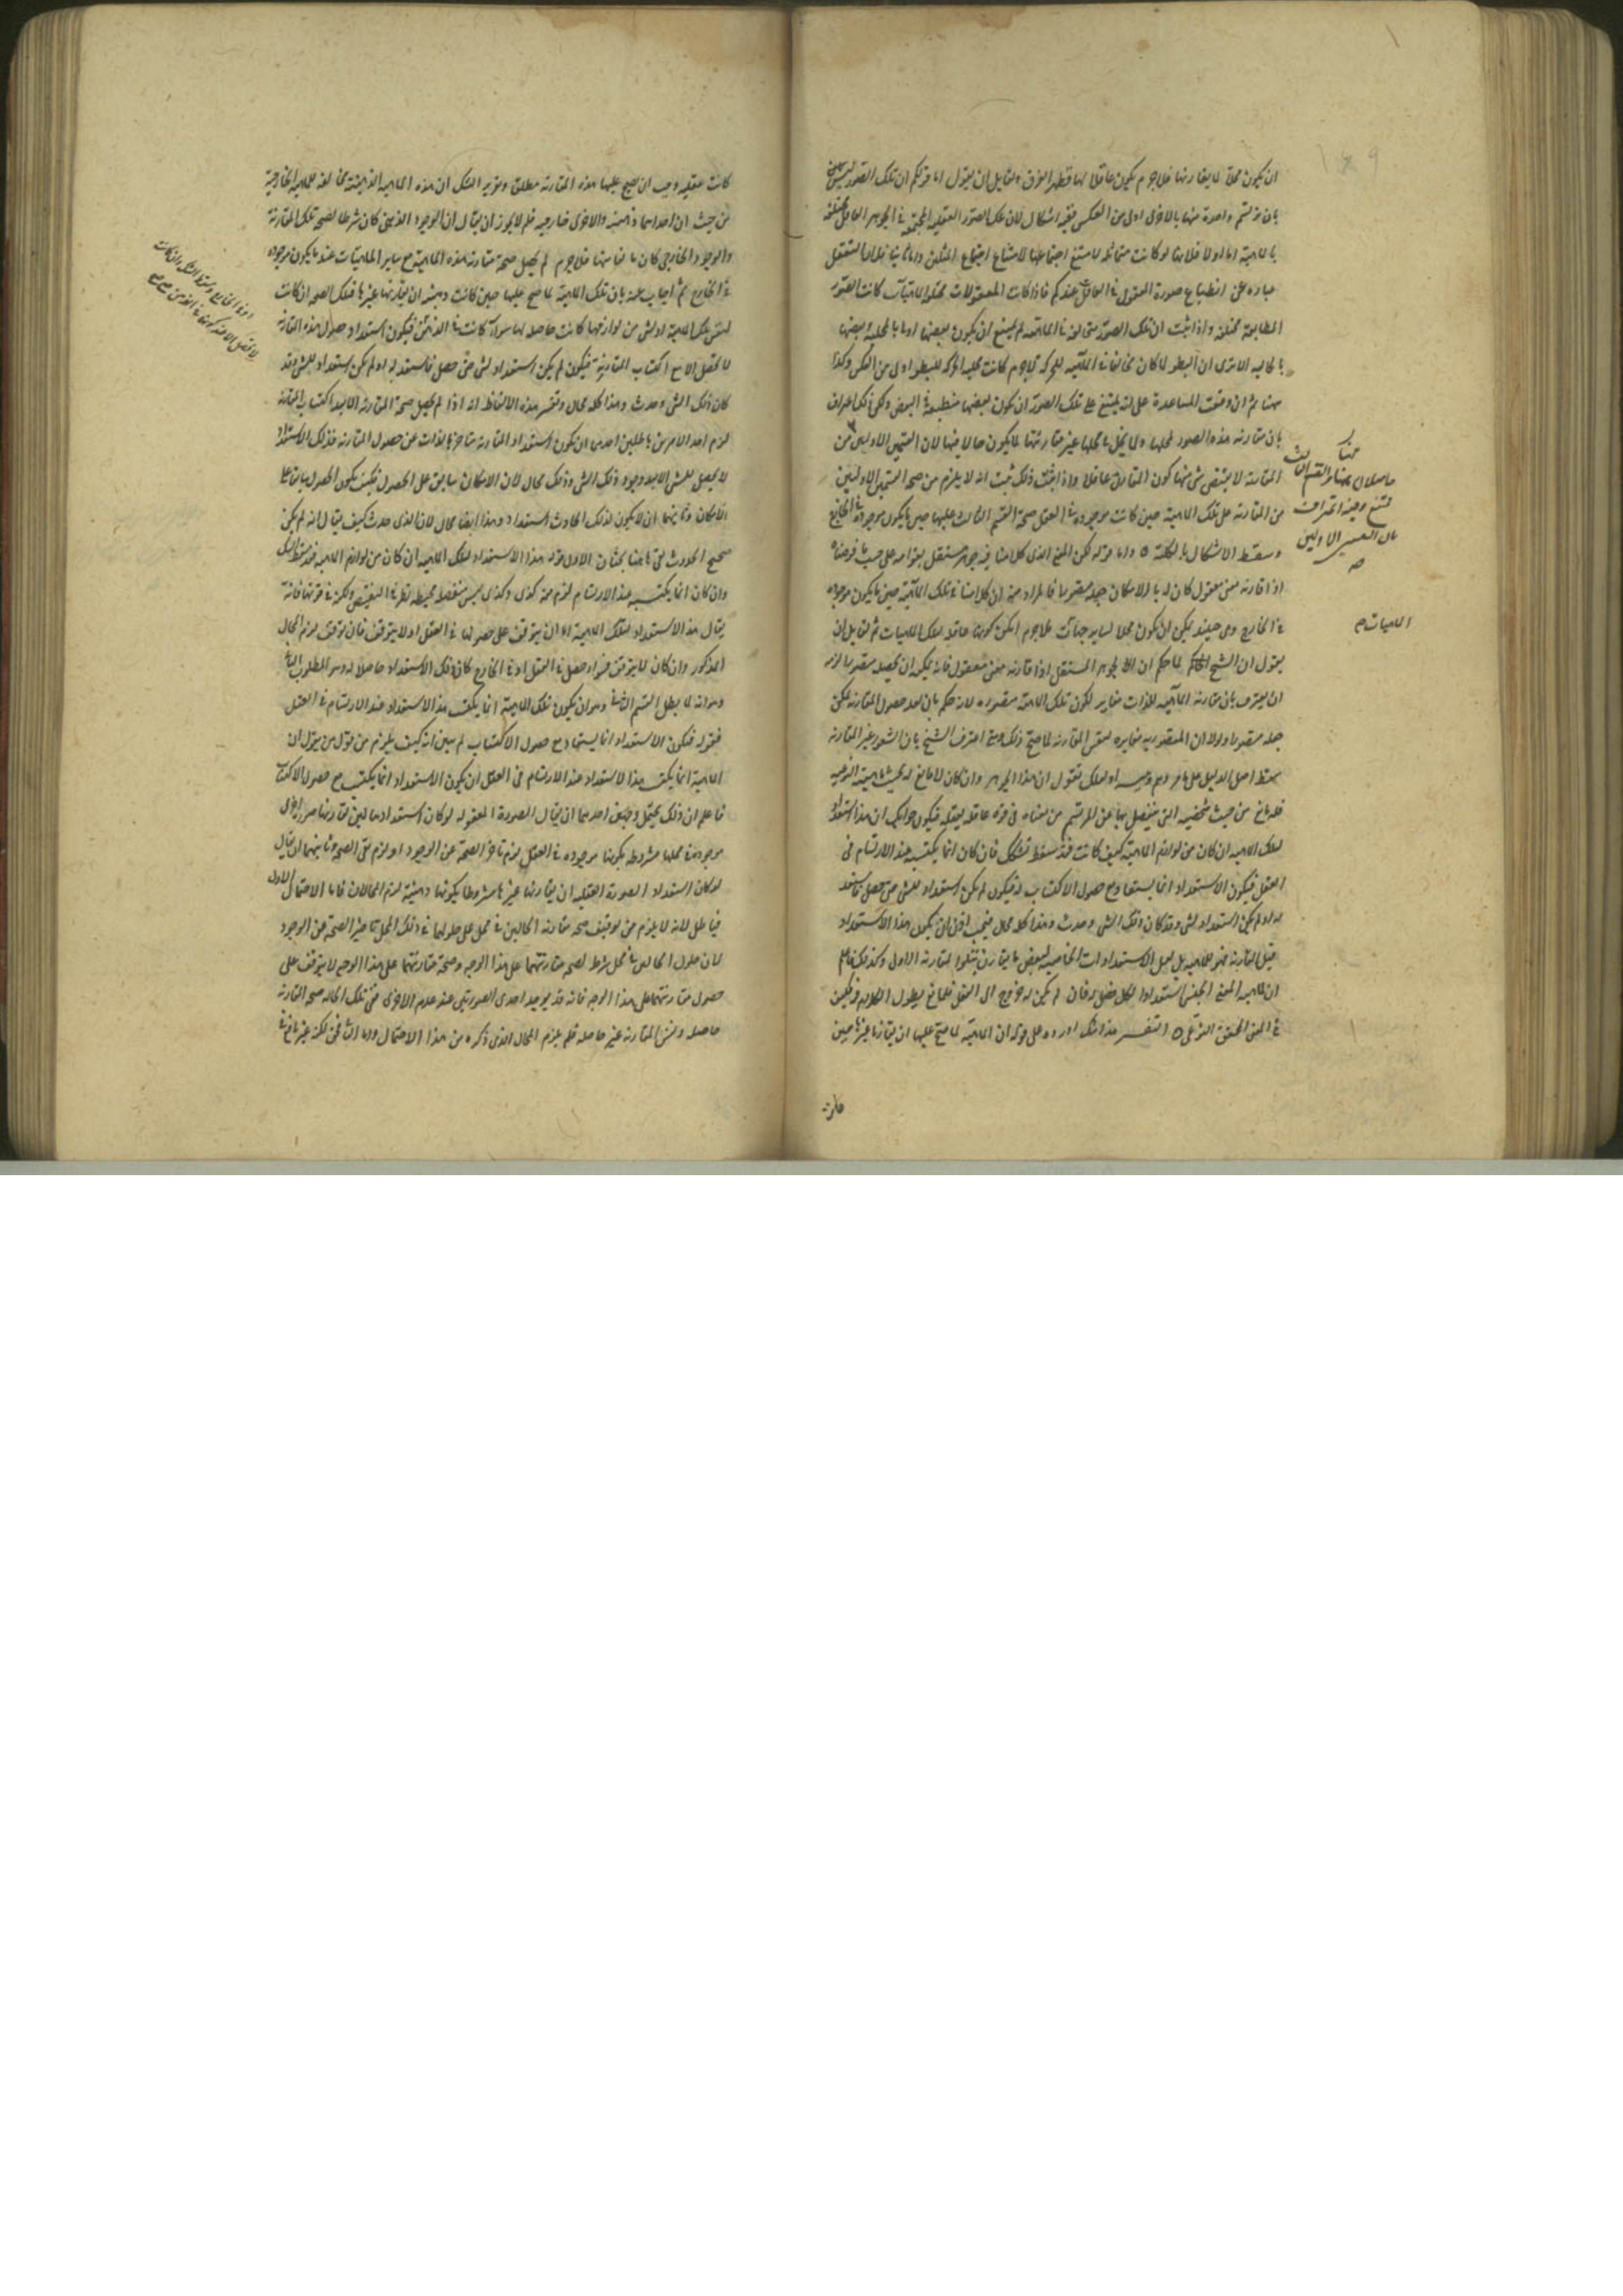 ان يكون محلا لما يقارنها فلا جرم يكون عاقلا لها فظهر الفرق ولقايل ان يقول اما قولكم ان تلك الصور ليس
بان ترتسم واحدة منها بالاخرى اولى من العكس ففيه اشكال لان تلك الصور العقلية المجتمعة في الجوهر العاقل مختلفة
بالماهية اما اولا فلانها لو كانت متماثلة لامتنع اجتماعها لامتناع اجتماع المثلين واما ثانيا فلان التعقل
عبارة عن انطباع صورة المعقول في العاقل عندكم فاذا كانت المعقولات مختلفة الماهيات كانت الصور
المطابقة مختلفة واذا ثبت ان تلك الصور متخالفة في الماهية لم يمتنع ان يكون بعضها اولى بالمحلية وبعضها
بالحالية الا ترى ان البطؤ لما كان مخالفا في الماهية للحركة لا جرم كانت محلية الحركة للبطؤ اولى من العكس وكذا
ههنا ثم ان وقعت المساعدة على انه يمتنع على تلك الصور ان يكون بعضها منطبعة في البعض ولكن ذلك اعتراف
بان مقارنة هذه الصور لمحلها ولما يحل في محلها غير مقارنتها لما يكون حالا فيها لان القسمين الاولين من
المقارنة لا يقتضى شى منها كون المقارن عاقلا واذا ثبت ذلك ثبت انه لا يلزم من صحة القسمين الاولين
من المقارنة على تلك الماهية حين كانت موجودة في العقل صحة القسم الثالث عليها حين ما يكون موجودة في الخارج
وسقط الاشكال بالكلية واما قوله لكن المعنى الذى كلامنا فيه جوهر مستقل بقوامه على حسب ما فرضناه
اذا قارنه معنى معقول كان له بالامكان جعله متصورا فالمراد منه ان كلامنا في تلك الماهية حين ما يكون موجودة
في الخارج وهى حينئذ يمكن ان يكون محلا لساير الماهيات فلا جرم امكن كونها عاقلة لتلك الماهيات ثم لقايل ان
يقول ان الشيخ لما حكم ان الجوهر المستقل اذا قارنه معنى معقول فانه يمكنه ان يجعله متصورا لزم
ان يعترف بان مقارنة الماهية للذات مغاير لكون تلك الماهية متصورة لانه حكم بان بعد حصول المقارنة يمكن
جعله متصورا ولولا ان المتصورية مغايرة لنفس المقارنة لما صح ذلك ومتى اعترف الشيخ بان الشعور غير المقارنة
سقط اصل الدليل على ما مر وهم وتنبيه او لعلك تقول ان هذا الجوهر وان كان لا مانع له بحسب ماهيته النوعية
فله مانع من حيث شخصيته التى ينفصل بها عن المرتسم من معناه في قوة عاقلة يعقله فيكون جوابك ان هذا استعداد
لتلك الماهية ان كان من لوازم الماهية كيف كانت فقد سقط تشككك فان كان انما يكتسب عند الارتسام في
العقل فيكون الاستعداد انما يستفاد مع حصول الاكتساب له فيكون لم يكن استعداد لشى حتى حصل فاستعد
له او لم يكن استعداد لشى وقد كان ذلك الشى وحدث وهذا كله محال فيجب اذن ان يكون هذا الاستعداد
قبل المقارنة فهو للماهية بل لعل الاستعدادات الخاصة لبعض ما يقارن يتلو المقارنة الاولى وكذلك فاعلم
ان لماهية المعنى الجنسى استعدادا لكل فصل له فان لم يكن له خروج الى الفعل فلمانع ليطول الكلام فيه فكيف
في المعنى المحقق النوعى التفسير هذا شك اورده على قوله ان الماهية لما صح عليها ان يقارنها غيرها حين
كانت
ههنا
حاصلا لان ههنا القسم الثالث
ممتنع وفيه اعتراف
بان القسمين الاولين
الماهيات صح
كانت عقلية وجب ان يصح عليها هذه المقارنة مطلقا وتقرير الشك ان هذه الماهية الذهنية مخالفة للماهية الخارجية
من حيث ان احداهما ذهنية والاخرى خارجية فلم لا يجوز ان يقال ان الوجود الذهنى كان شرطا لصحة تلك المقارنة
والوجود الخارجى كان مانعا منها فلا جرم لم يحصل صحة مقارنة هذه الماهية مع ساير الماهيات عند ما يكون موجودة
في الخارج ثم اجاب عنه بان تلك الماهية لما صح عليها حين كانت ذهنية ان يقارنها غيرها فتلك الصحة ان كانت
لنفس تلك الماهية او لشى من لوازمها كانت حاصلة لها سواء كانت في الذهن فيكون استعداد حصول هذه المقارنة
لا تحصل الا مع اكتساب المقارنة فيكون لم يكن استعداد لشى حتى حصل فاستعد له او لم يكن استعداد للشى وقد
كان ذلك الشى وحدث وهذا كله محال وتفسير هذه الالفاظ انه اذا لم يحصل صحة المقارنة الا بعد اكتساب المقارنة
لزم احد الامرين باطلين احدهما ان يكون استعداد المقارنة متاخرا بالذات عن حصول المقارنة فذلك الاستعداد
لا يحصل للشى الا بعد وجود ذلك الشى وذلك محال لان الامكان سابق على الحصول فكيف يكون الحصول سابقا على
الامكان وثانيهما ان لا يكون لذلك الحادث استعداد وهذا ايضا محال لان الذى حدث كيف يقال انه لم يكن
صحيح الحدوث بقى هاهنا بحثان الاول قوله هذا الاستعداد لتلك الماهية ان كان من لوازم الماهية فقد سقط الشك
وان كان انما يكتسبه عند الارتسام لزم منه كذى وكذى ليس
يقال هذا الاستعداد لتلك الماهية اما ان يتوقف على حصولها في العقل او لا يتوقف فان توقف لزم المحال
المذكور وان كان لا يتوقف فسواء حصل في العقل او في الخارج كان ذلك الاستعداد حاصلا له وهو المطلوب الثانى
وهو انه لا يبطل القسم الثانى وهو ان يكون تلك الماهية انما يكتسب هذا الاستعداد عند الارتسام في العقل
فقوله فيكون الاستعداد انما يستفاد مع حصول الاكتساب لم يبين انه كيف يلزم من قول من يقول ان
الماهية انما يكتسب هذا الاستعداد عند الارتسام في العقل ان يكون الاستعداد انما يكتسب مع حصول الاكتساب
فاعلم ان ذلك يحتمل وجهين احدهما ان يقال الصورة المعقولة لو كان استعدادها لان يقارنها صورة اخرى
موجودة في محلها مشروطة بكونها موجودة في العقل لزم تاخر الصحة عن الوجود او لزم نفى الصحة وثانيهما ان يقال
لو كان استعداد الصورة العقلية ان يقارنها غيرها مشروطا بكونها ذهنية لزم المحالان فاما الاحتمال الاول
فباطل لانه لا يلزم من توقف صحة مقارنة الحالين في محل على حلولهما في ذلك المحل تاخير الصحة عن الوجود
لان حلول الحالين في محل شرط لصحة مقارنتهما على هذا الوجه وصحة مقارنتهما على هذا الوجه لا يتوقف على
حصول مقارنتهما على هذا الوجه فانه قد يوجد احدى الصورتين عند عدم الاخرى ففى تلك الحالة صحة المقارنة
حاصلة ونفس المقارنة غير حاصلة فلم يلزم المحال الذى ذكره من هذا الاحتمال واما الثانى فحق لكنه غير نافع في
او في الخارج وسقط الشك وان كانت
لا تحصل الا عند كونها في الذهن